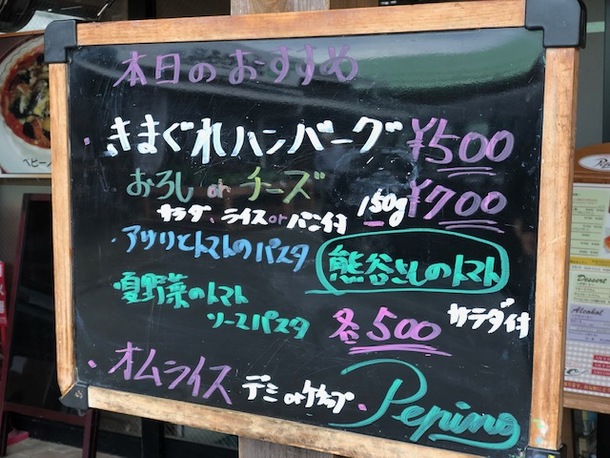 本日のおすすめ
・きまぐれハンバーグ ¥500
おろし or チーズ 150g ¥700
サラダ、ライス or パン付
・アサリとトマトのパスタ 熊谷さんのトマト
夏野菜のトマト
ソースパスタ 各500 サラダ付
・オムライス デミ or ケチャップ・
Peping
Dessert
Alcohol